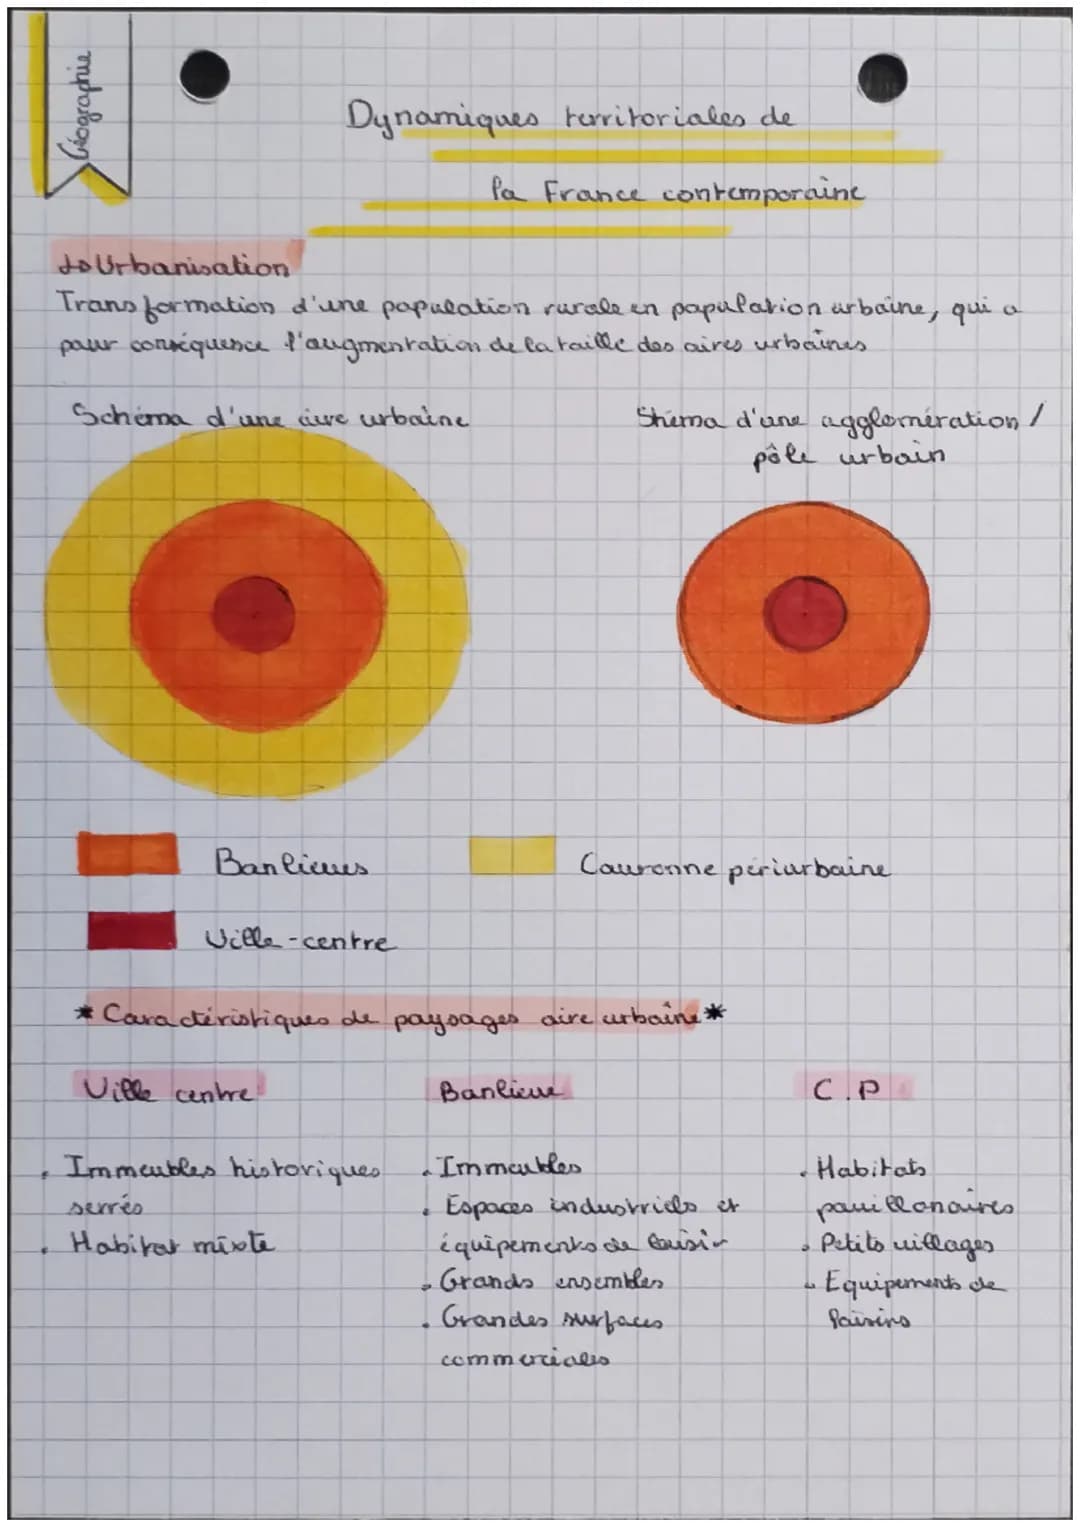 Géographie
Dynamiques territoriales de
la France contemporaine
↳ Urbanisation
Transformation d'une population rurale en population urbaine, qui a
pour conséquence l'augmentation de la taille des aires urbaines
Schéma d'une aire urbaine
Shéma d'une agglomération /
pôle urbain
Banlieues
Couronne périurbaine
Ville-centre
* Caractéristiques de paysages aire urbaine *
Ville centre
Banlieue
C.P
• Immeubles historiques
serrés
• Habitat mixte
• Immeubles
• Espaces industriels et
équipements de loisir
• Grands ensembles
• Grandes surfaces
commerciales
• Habitats
pavillonaires
• Petits villages
• Equipements de
loisirs